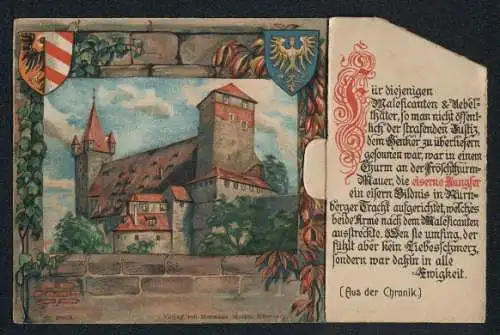 Für diejenigen
Maleficanten & Uebel-
thäter, so man nicht öffent-
lich der strafenden Justiz,
dem Henker zu überliefern
gesonnen war, war in einem
Thurm an der Fröschthurm-
Mauer, die eiserne Jungfer
ein eisern Bildnis in Nürn-
berger Tracht aufgerichtet, welches
beide Arme nach dem Maleficanten
ausstreckte. Wen sie umfing, der
fühlt aber kein Liebesschmerz,
sondern war dahin in alle
Ewigkeit.
(Aus der Chronik.)
Verlag von Hermann Martin, Nürnberg